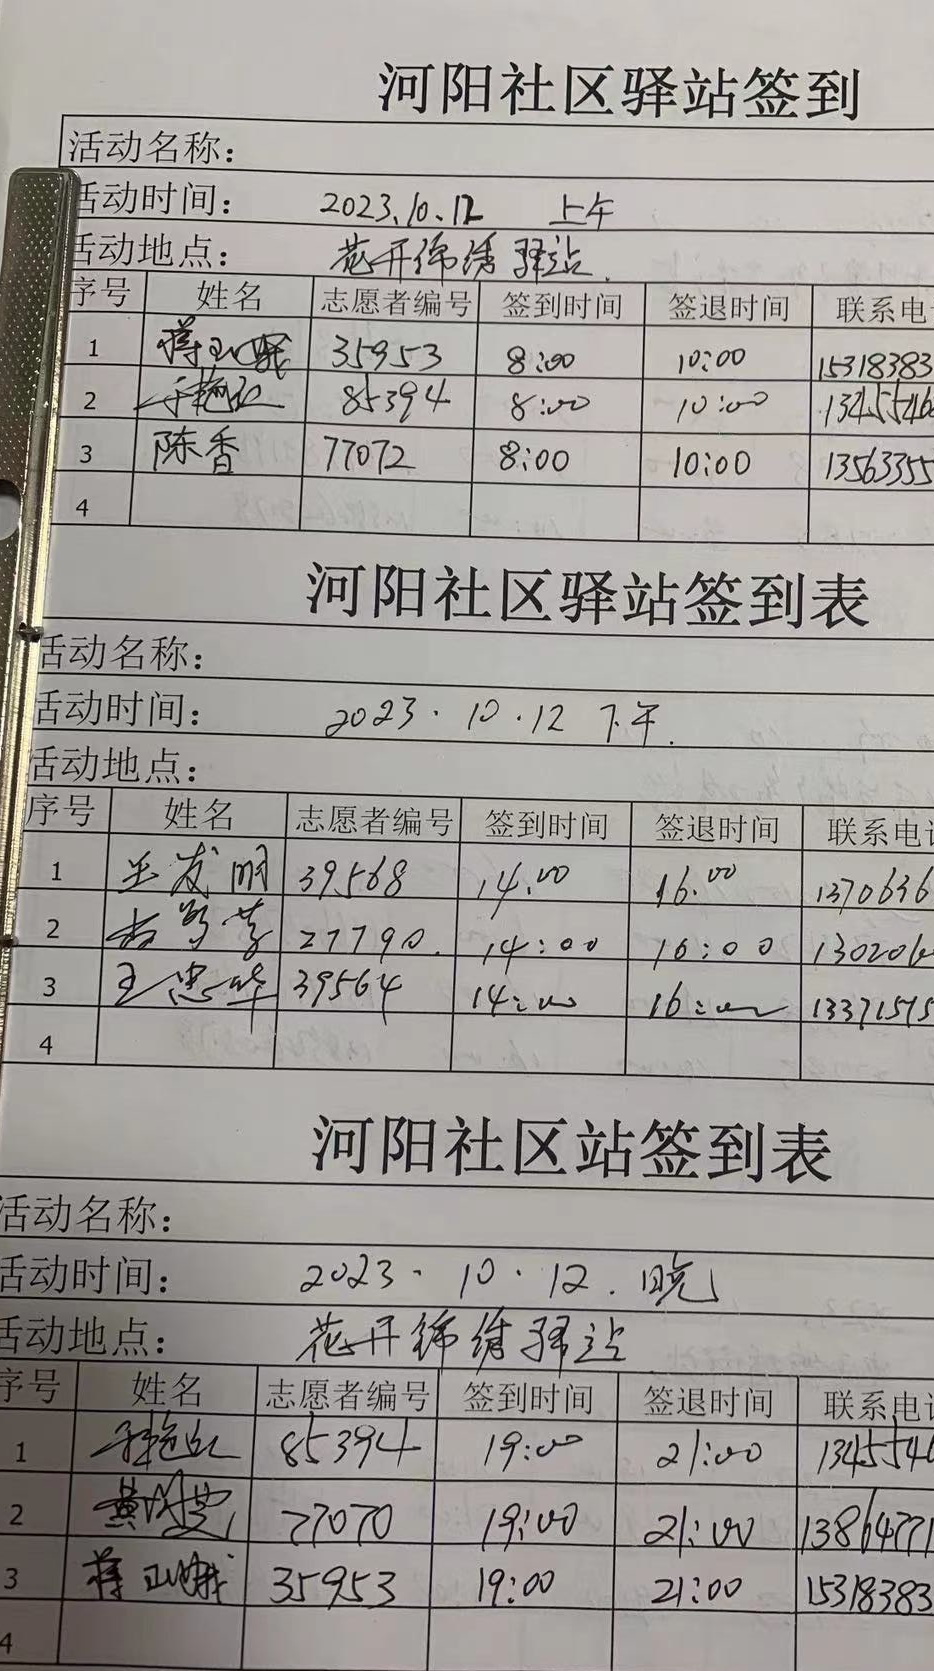 河阳社区驿站签到
活动名称：
活动时间： 2023.10.12 上午
活动地点： 花开锦绣驿站
序号 姓名 志愿者编号 签到时间 签退时间 联系电
1 35953 8:00 10:00 15318383
2 于艳红 85394 8:00 10:00 1345546
3 陈香 77072 8:00 10:00 13563355
4
河阳社区驿站签到表
活动名称：
活动时间： 2023.10.12 下午.
活动地点：
序号 姓名 志愿者编号 签到时间 签退时间 联系电话
1 王发明 39568 14.00 16.00 1370636
2 27790. 14:00 16:00 130206
3 王忠华 39564 14:00 16:00 13371575
4
河阳社区站签到表
活动名称：
活动时间： 2023.10.12.晚
活动地点： 花开锦绣驿站
序号 姓名 志愿者编号 签到时间 签退时间 联系电话
1 于艳红 85394 19:00 21:00 1345546
2 77070 19:00 21:00 13864771
3 35953 19:00 21:00 15318383
4